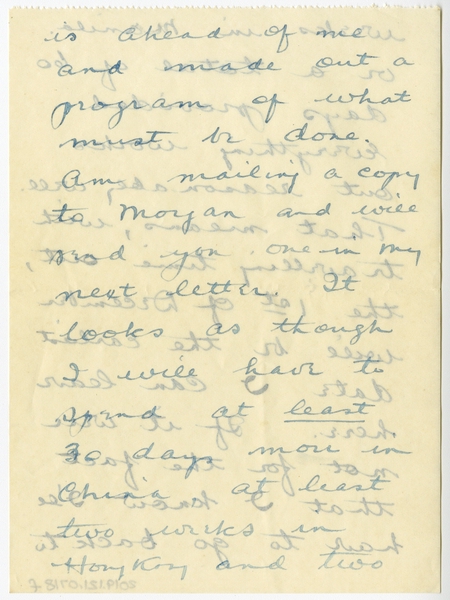 is ahead of me
and made out a
program of what
must be done.
Am mailing a copy
to Morgan and will
send you one in my
next letter. It
looks as though
I will have to
spend at least
30 days more in
China at least
two weeks in
HongKong and two